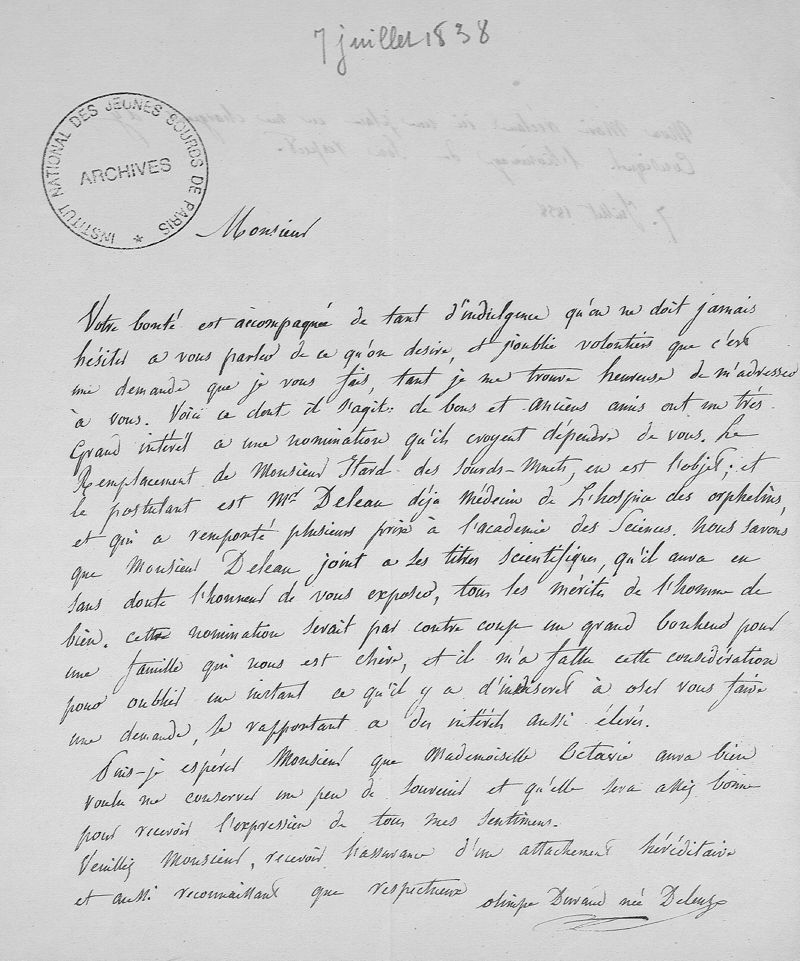 7 juillet 1838
INSTITUT NATIONAL DES JEUNES SOURDS DE PARIS
ARCHIVES
Monsieur
Votre bonté est accompagnée de tant d'indulgence qu'on ne doit jamais
hésiter a vous parler de ce qu'on desire, et j'oublie volontiers que c'est
une demande que je vous fais, tant je me trouve heureuse de m'adresser
à vous. Voici ce dont il s'agit: de bons et anciens amis ont un très
Grand intérêt a une nomination qu'ils croyent dépendre de vous. Le
Remplacement de Monsieur Itard des Sourds-Muets, en est l'objet; et
le postulant est Mr. Deleau déja Médecin de L'hospice des orphelins,
et qui a remporté plusieurs prix à l'academie des Sciences. Nous savons
que Monsieur Deleau joint a ses titres scientifiques, qu'il aura eu
sans doute l'honneur de vous exposer, tous les mérites de l'homme de
bien. cette nomination serait par contre coup un grand bonheur pour
une famille qui nous est chère, et il m'a fallu cette considération
pour oublier un instant ce qu'il y a d'indiscret à oser vous faire
une demande, se rapportant a des intérêts aussi élevés.
Puis-je espérer Monsieur que Mademoiselle Octavie aura bien
voulu me conserver un peu de souvenir et qu'elle sera assez bonne
pour recevoir l'expression de tous mes sentimens.
Veuillez Monsieur, recevoir l'assurance d'un attachement héréditaire
et aussi reconnaissant que respectueux
olimpe Durand née Deleuze